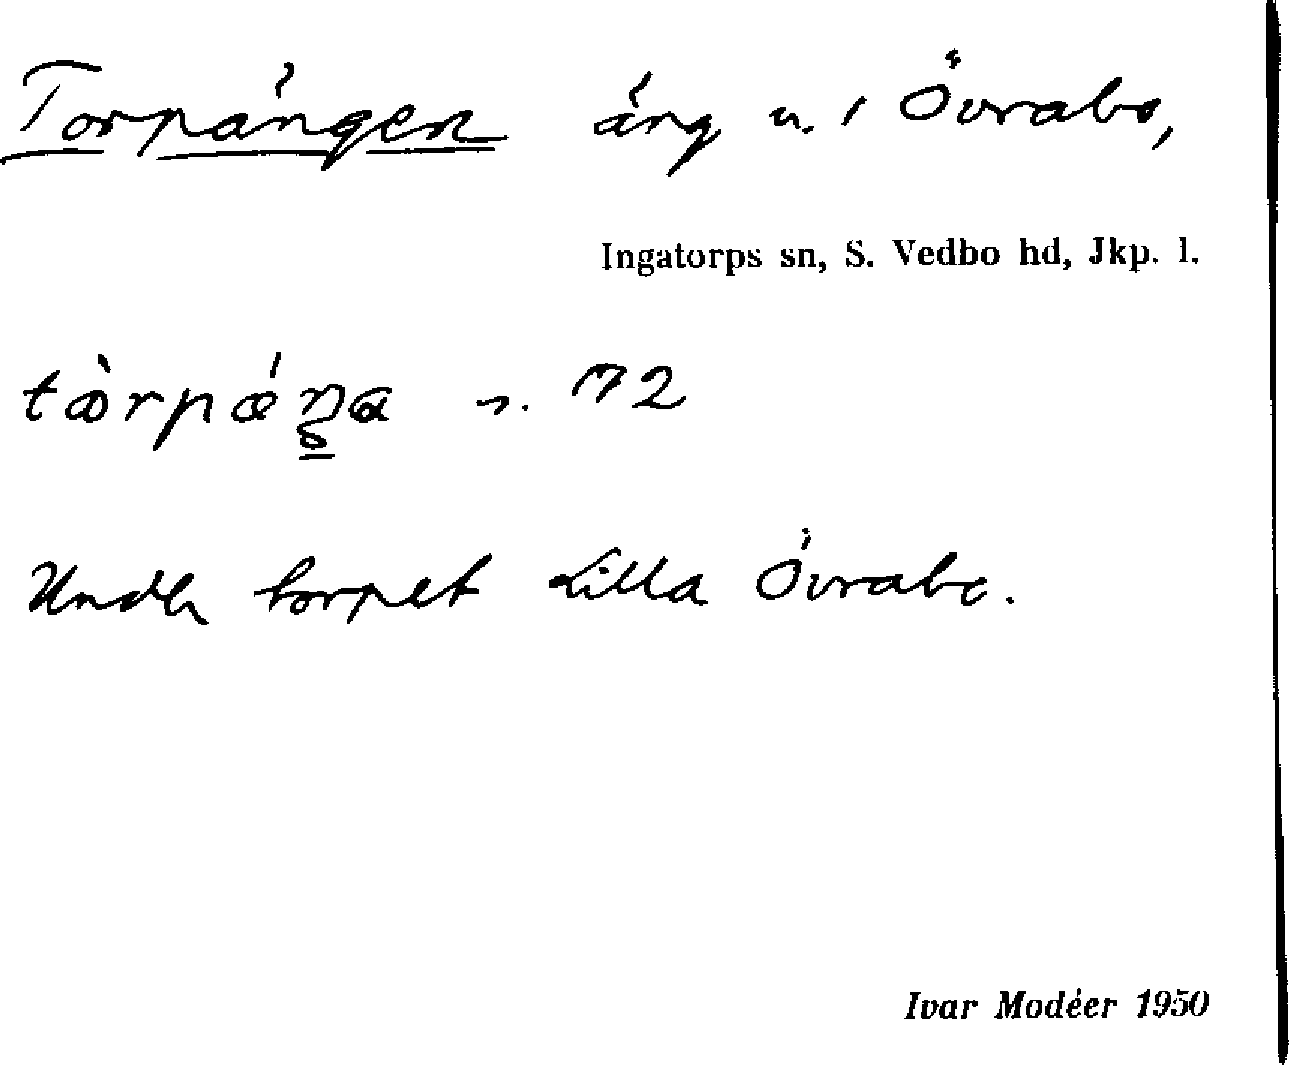 Torpängen äng n. i Övrabo,
Ingatorps sn, S. Vedbo hd, Jkp. l.
n. 72
Under torpet Lilla Övrabo.
Ivar Modéer 1950